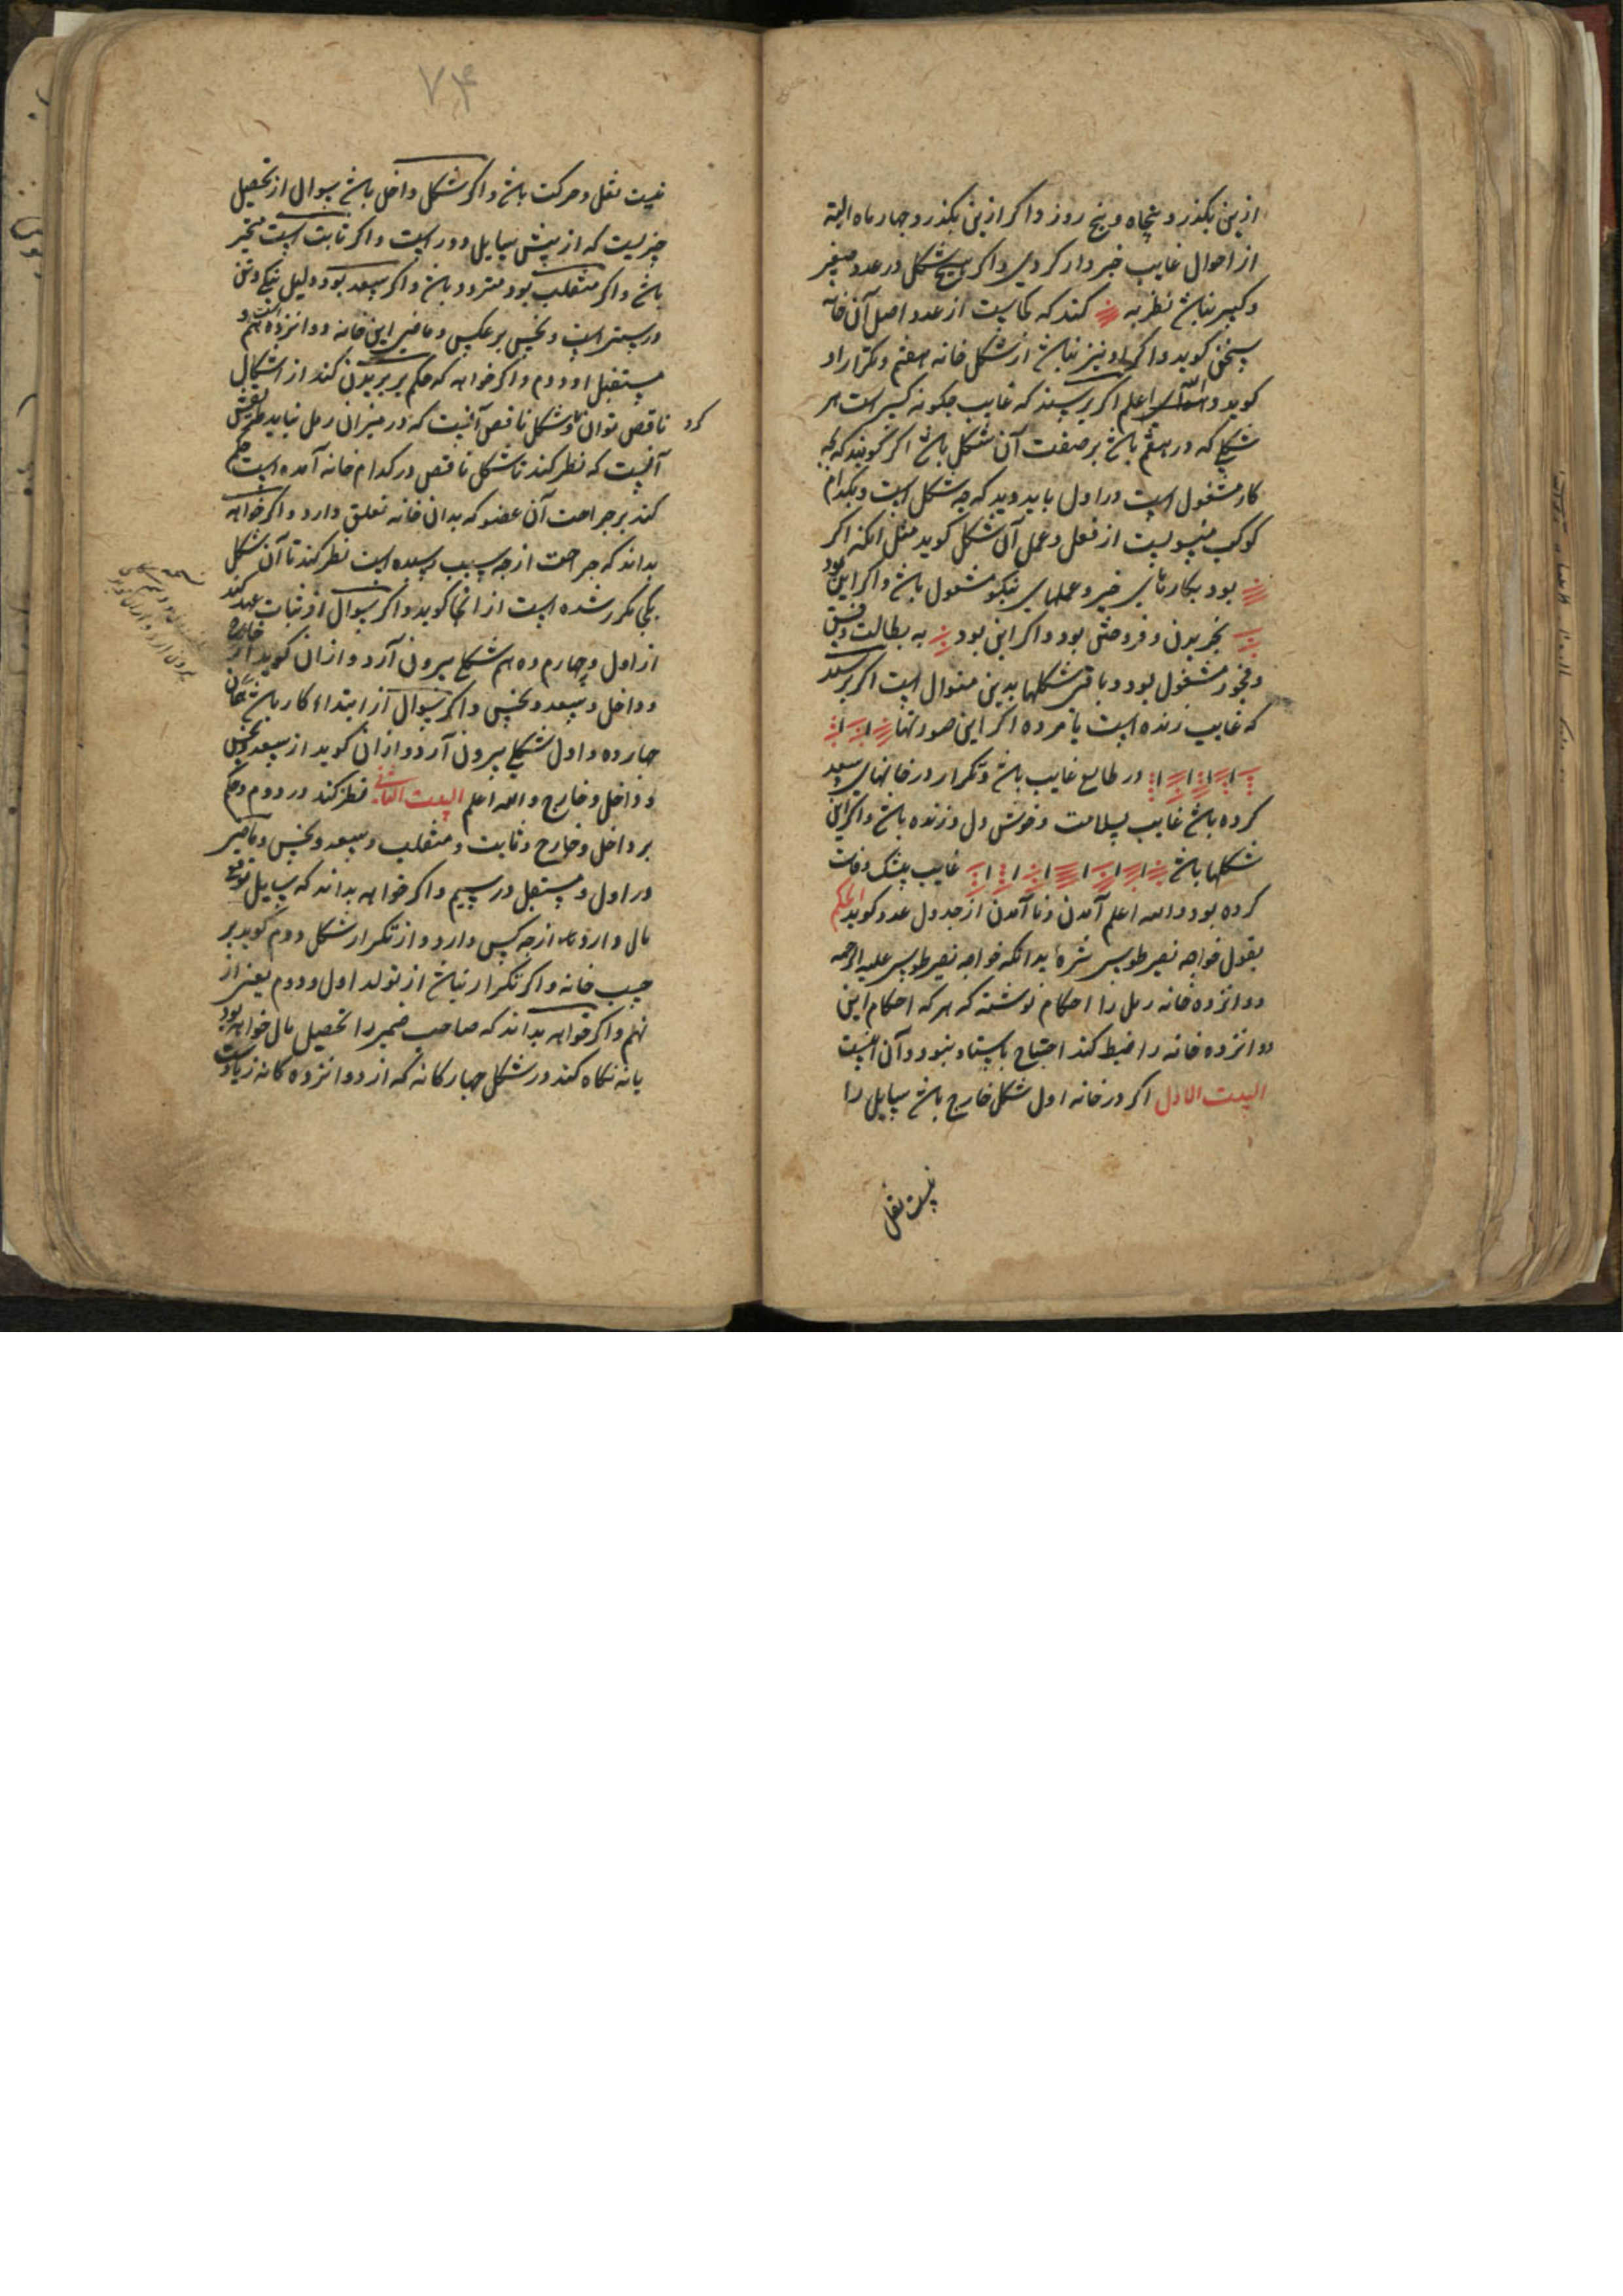 ازین بگذرد و پنجاه و پنج روز و اکر ازین بگذرد و چهار ماه البته
از احوال غایب خبردار کردی و اکر هیچ شکل در عدد صغیر
و کبیر نباشد نظر به کند که کجاست از عدد اصل آن خانه
سخن کوید و اکر نیز نباشد از شکل خانه هفتم و تکرار او
کوید والله اعلم اکر پرسند که غایب چکونه کسیست هر
شکلی که در هفتم باشد بر صفت آن شکل باشد اکر کویند که بچه
کار مشغول است در اول باید دید که چه شکل است و بکدام
کوکب منسوبست از فعل و عمل آن شکل کوید مثل انکه اکر
بود بکارهای خیر و عملهای نیکو مشغول باشد و اکر این بود
بخریدن و فروختن بود و اکر این بود به بطالت و فسق
و فجور مشغول بود و باقی شکلها بدین منوال است اکر پرسند
که غایب زنده است یا مرده اکر این صورتها
در طالع غایب باشد و تکرار در خانهای سعد
کرده باشد غایب بسلامت و خوش دل و زنده باشد و اکر این
شکلها باشد غایب بیشک وفات
کرده بود والله اعلم آمدن و نا آمدن از جدول عدد کوید الحکم
بقول خواجه نصیر طوسی بدانکه خواجه نصیر طوسی علیه الرحمه
دوانزده خانه رمل را احکام نوشته که هر که احکام این
دوانزده خانه را ضبط کند احتیاج باستاد نبود و آن اینست
البیت الاول اکر در خانه اول شکل خارج باشد سایل را
نیت نقل
۷۴
نیت نقل و حرکت باشد و اکر شکل داخل باشد سوال از تحصیل
چیزیست که از پیش سایل دور است و اکر ثابت است متحیر
باشد و اکر منقلب بود متردد باشد و اکر سعد بود دلیل نیکی و تن
درستی است و نحس بر عکس و ماضی این خانه دوانزدهم است و
مستقبل او دوم و اکر خواهد که حکم بر بریدن کند از اشکال
ناقص توان کرد و شکل ناقص آنست که در میزان رمل نیاید طریقش
آنست که نظر کند تا شکل ناقص در کدام خانه آمده است حکم
کند بر جراحت آن عضو که بدان خانه تعلق دارد و اکر خواهد
بداند که جراحت از چه سبب رسیده است نظر کند تا آن شکل
بکجا مکرر شده است از انجا کوید و اکر سوال از ثبات عهد کند
از اول و چهارم و دهم شکلی بیرون آرد و از ان کوید از خارج
و داخل و سعد و نحس و اکر سوال از ابتداء کار باشد
چارده و اول شکلی بیرون آرد و از ان کوید از سعد و نحس
و داخل و خارج والله اعلم البیت الثانی نظر کند در دوم و حکم
بر داخل و خارج و ثابت و منقلب و سعد و نحس و ماضی
در اول و مستقبل در سیم و اکر خواهد بداند که سایل توقع
مال دارد از چه کس دارد و از تکرار شکل دوم کوید بر
حسب خانه و اکر تکرار نباشد از تولد اول و دوم یعنی از
نهم و اکر خواهد بداند که صاحب ضمیر را تحصیل مال خواهد بود
یا نه نکاه کند در شکل چهارکانه که از دوانزده کانه زیادست